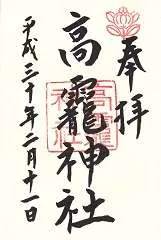 奉拝
高龗神社
平成三十年二月十一日
高龗神社